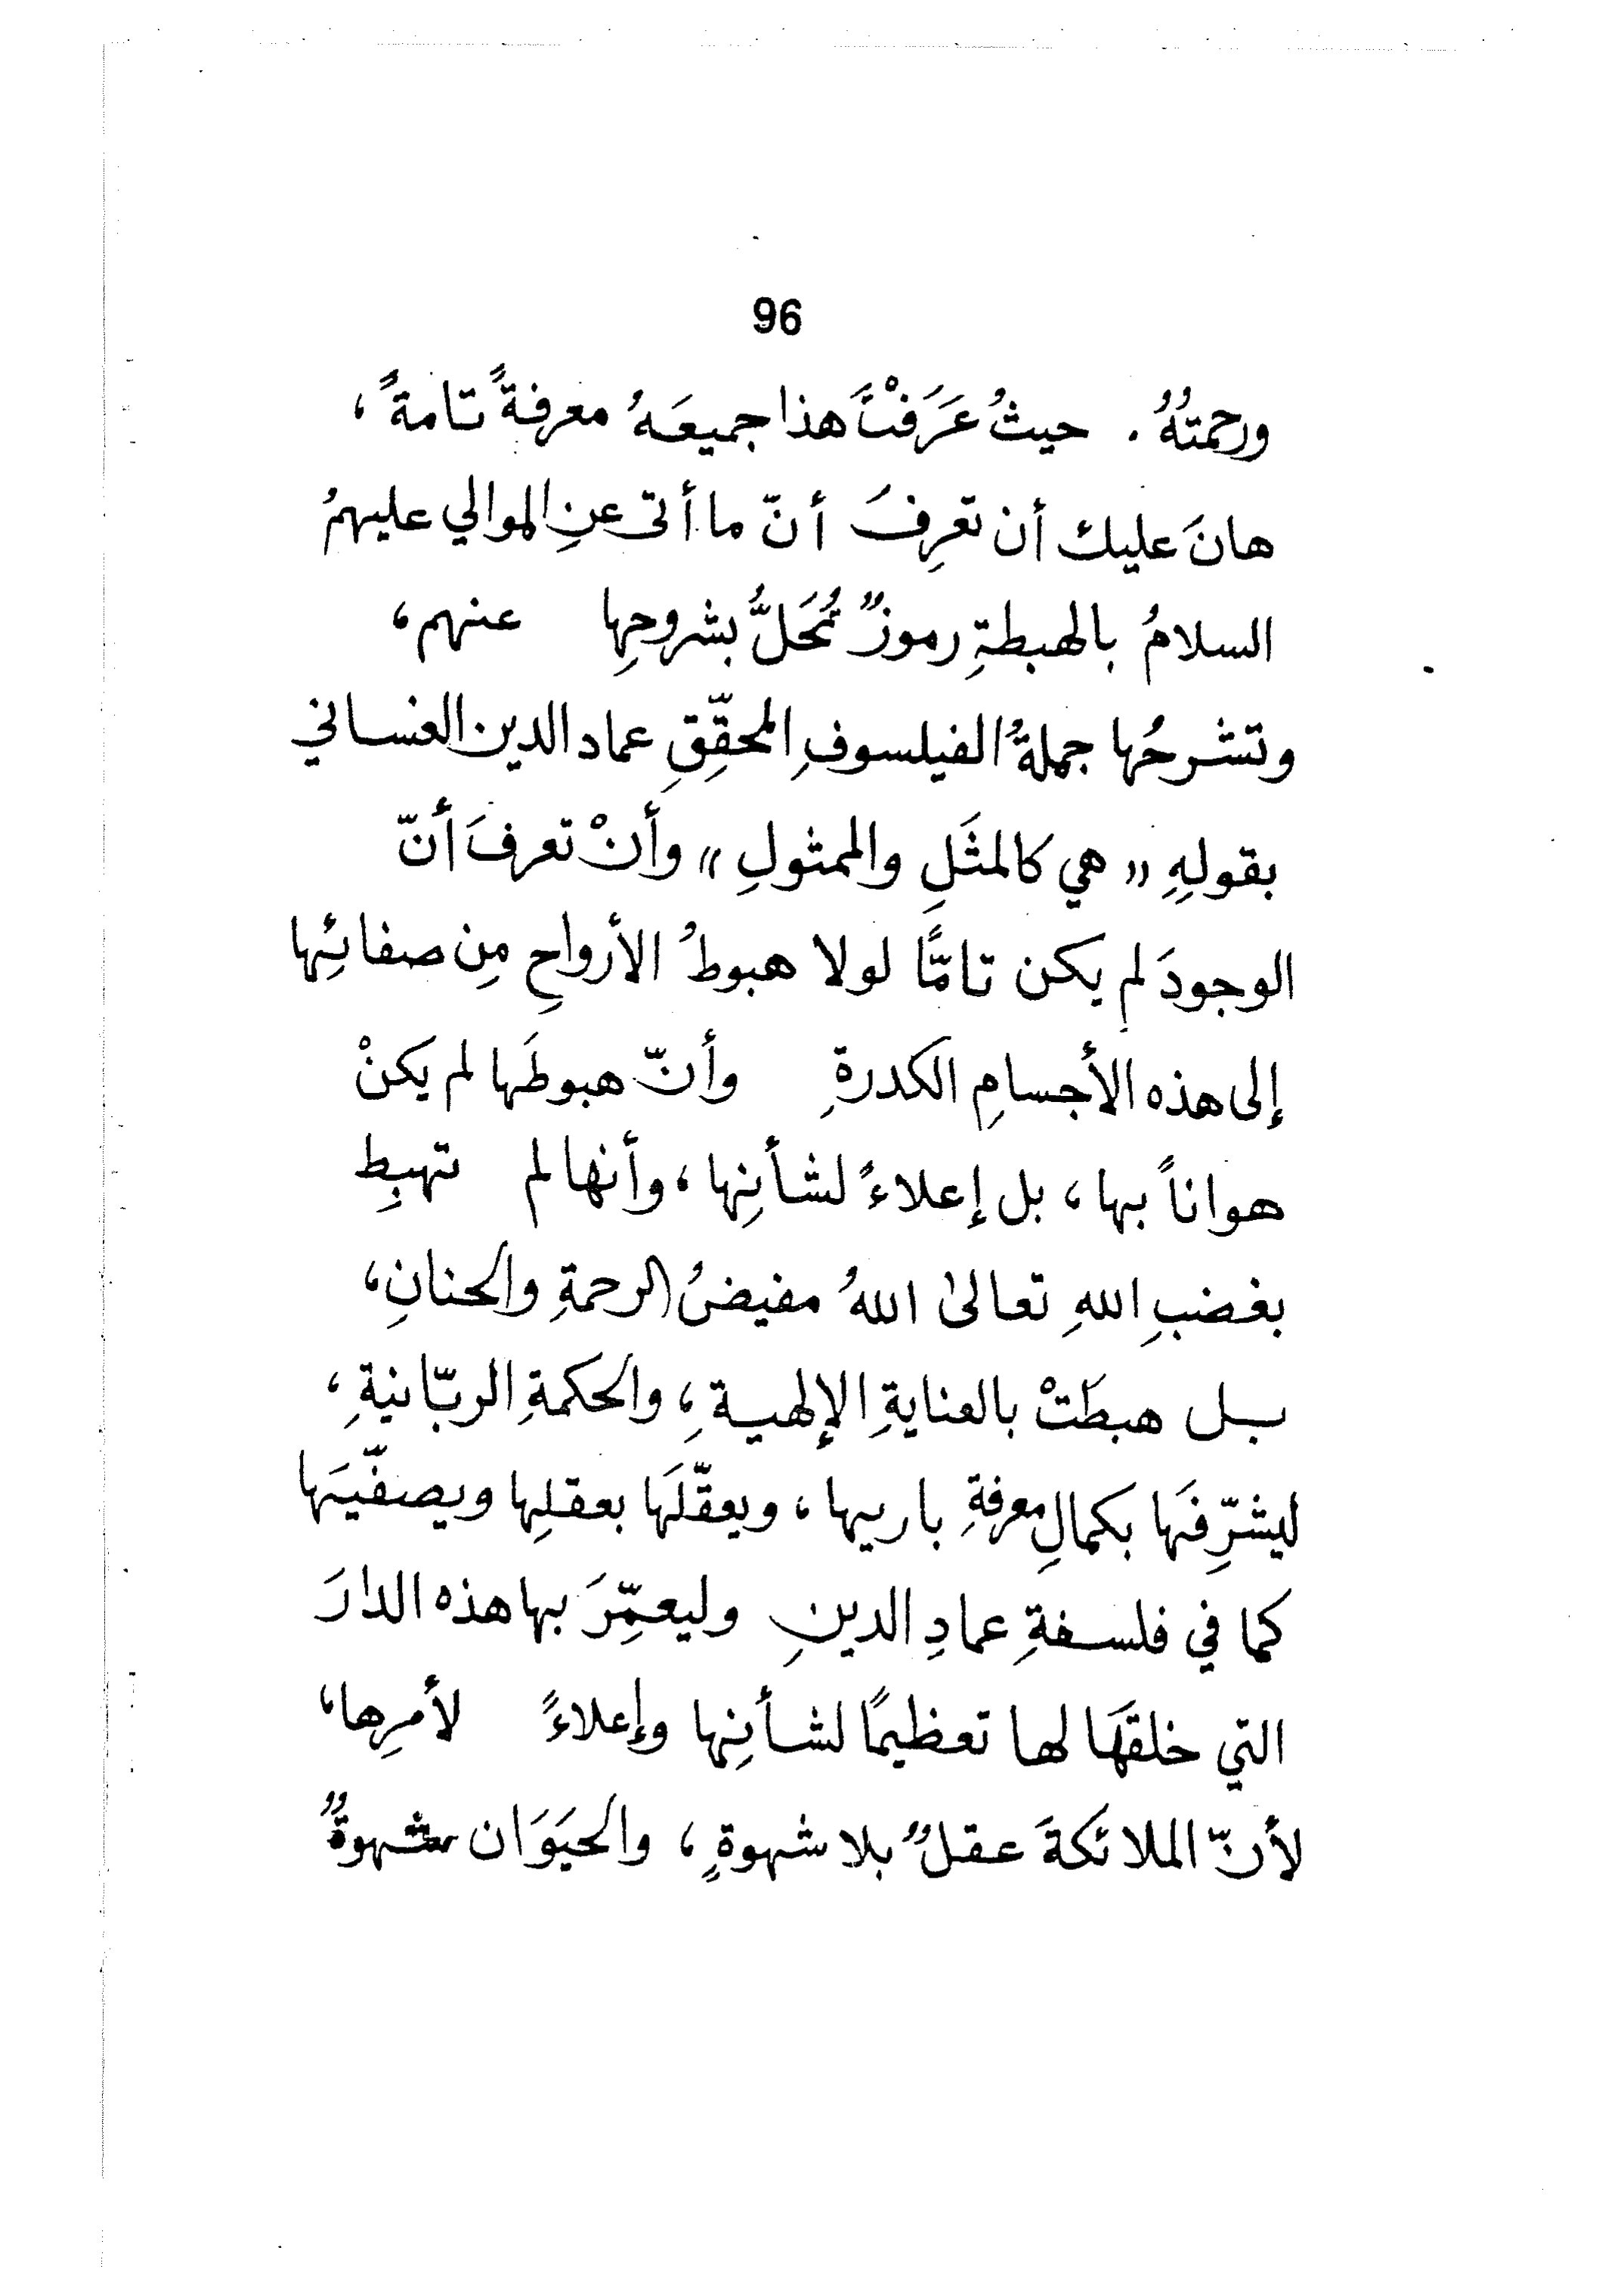 96
ورحمتُهُ . حيثُ عَرَفْتَ هذا جميعَهُ معرفةً تامةً ،
هانَ عليك أن تعرِفَ أنّ ما أتى عنِ الموالي عليهمُ
السلامُ بالهبطةِ رموزٌ تُحَلُّ بشروحِها عنهم ،
وتشرحُها جملةُ الفيلسوفِ المحقِّقِ عماد الدين الغساني
بقولِهِ « هي كالمثَلِ والممثولِ » وأنْ تعرفَ أنّ
الوجودَ لم يكن تامًّا لولا هبوطُ الأرواحِ مِن صفائِها
إلى هذه الأجسامِ الكدرةِ وأنّ هبوطَها لم يكنْ
هواناً بها ، بل إعلاءً لشأنِها ، وأنها لم تهبِط
بغضبِ اللهِ تعالىٰ اللهُ مفيضُ الرحمةِ والحنانِ ،
بل هبطَتْ بالعنايةِ الإلهيةِ ، والحكمةِ الربّانيةِ ،
ليشرِّفَها بكمالِ معرفةِ باريها ، ويعقّلَها بعقلِها ويصفّيَها
كما في فلسفةِ عمادِ الدينِ وليعمِّرَ بها هذه الدارَ
التي خلقَها لها تعظيمًا لشأنِها وإعلاءً لأمرِها ،
لأنّ الملائكةَ عقلٌ بلا شهوةٍ ، والحيَوَان شهوةٌ